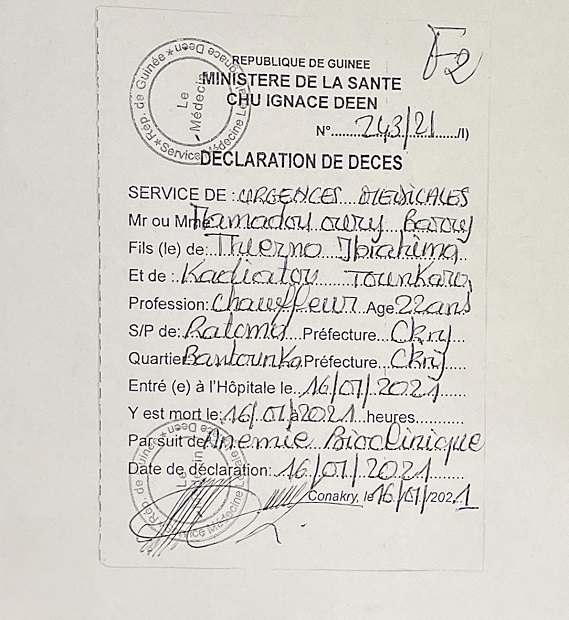 F2
REPUBLIQUE DE GUINEE
MINISTERE DE LA SANTE
CHU IGNACE DEEN
Rép. de Guinée * Ignace Deen * Service Médecine Le
Le Médecin
N°.......243/21....../I)
DECLARATION DE DECES
SERVICE DE : URGENCES MEDICALES
Mr ou Mme Mamadou oury Barry
Fils (le) de: Thierno Ibrahima
Et de : Kadiatou Tounkara
Profession: Chauffeur Age 22 ans
S/P de: Ratoma Préfecture... Ckry
Quartier Bantounka Préfecture... Ckry
Entré (e) à l'Hôpitale le 16/01/2021
Y est mort le: 16/01/à 2021 heures
Par suit de Anemie Bioclinique
Date de déclaration: 16/01/2021
Conakry, le 16/01/2021